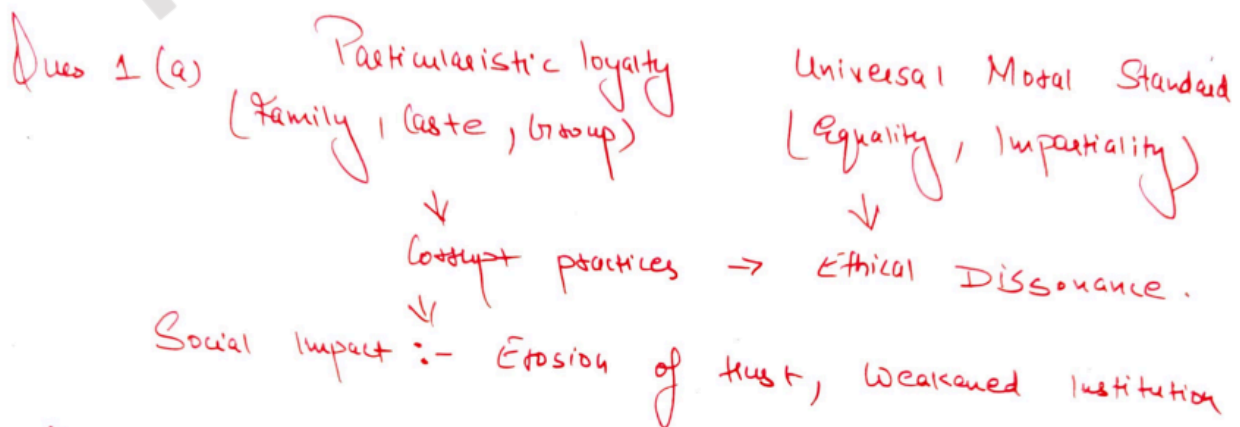 Ques 1 (a) Particularistic loyalty Universal Moral Standard
(Family, Caste, Group) (Equality, Impartiality)
↓ ↓
Corrupt practices → Ethical Dissonance.
↓
Social Impact :- Erosion of trust, Weakened Institution